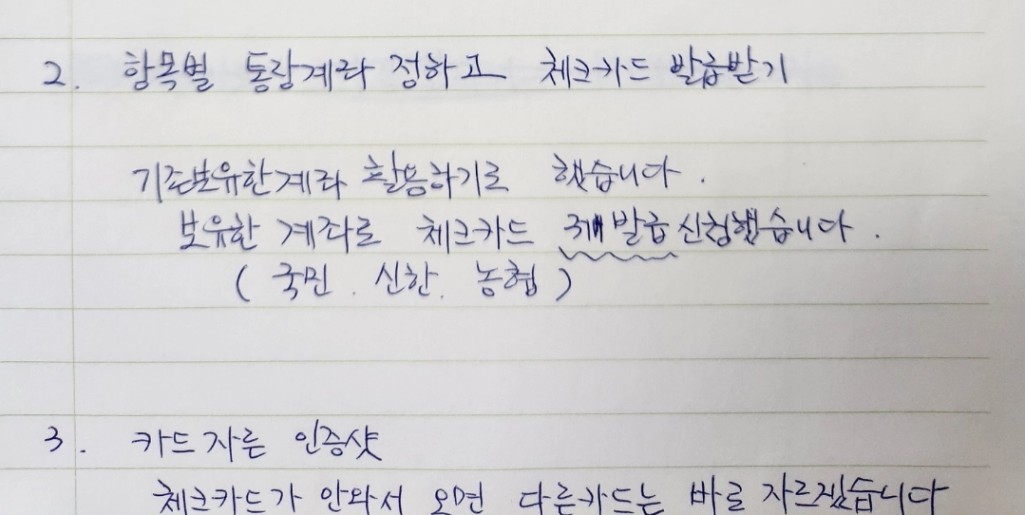 2. 항목별 통장계좌 정하고 체크카드 발급받기
기존보유한계좌 활용하기로 했습니다.
보유한 계좌로 체크카드 3개 발급 신청했습니다.
( 국민. 신한. 농협 )
3. 카드 자른 인증샷
체크카드가 안와서 오면 다른카드는 바로 자르겠습니다